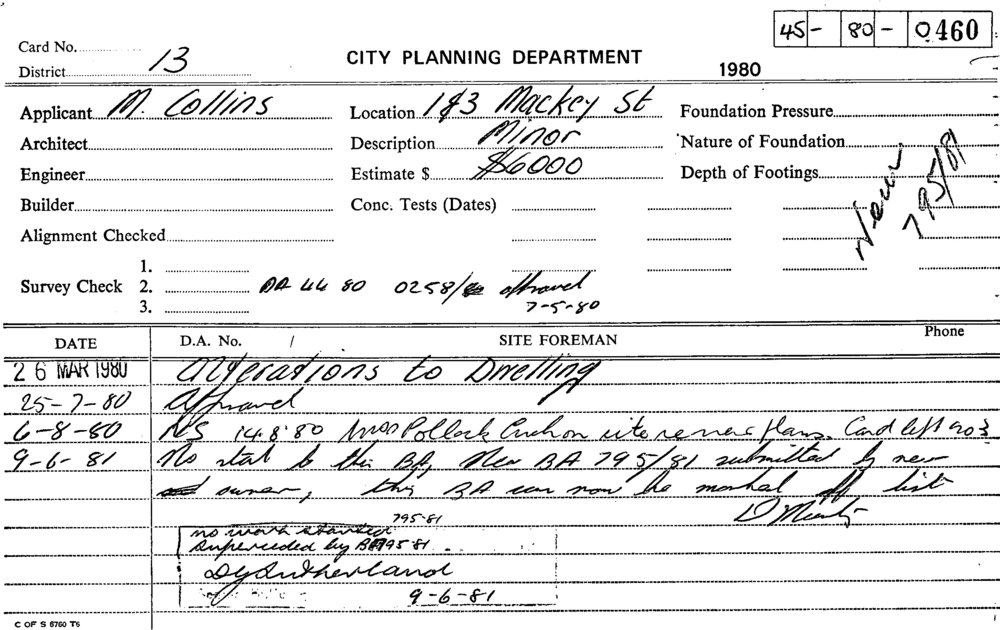 45- 80- 0460
Card No.
District 13
CITY PLANNING DEPARTMENT
1980
Applicant M. Collins
Location 1&3 Mackey St
Foundation Pressure
Architect
Description Minor
Nature of Foundation
Engineer
Estimate $ $6000
Depth of Footings
New 795/81
Builder
Conc. Tests (Dates)
Alignment Checked
1.
Survey Check 2. DA 44 80 0258/ approved
3. 7-5-80
DATE D.A. No. SITE FOREMAN Phone
26 MAR 1980 Alterations to Dwelling
25-7-80 Approved
6-8-80 N/S 14.8.80 Mrs Pollock site plans. Card left no 3
9-6-81 No start to this BA, New BA 795/81 submitted by new
owner, this BA can now be marked off list
795-81
no work started
superceded by BA795 81
D G Sutherland
9-6-81
C OF S 6760 T6